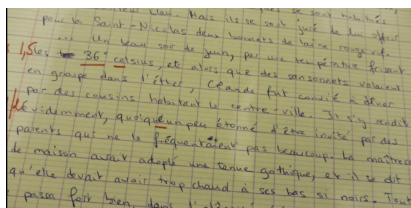 pour la Saint-Nicolas deux bonnets de laine rouge vif.
... Un beau soir de juin, par une température faisant
1,5 les 36° celsius, et alors que des sansonnets volaient
en groupe dans l'éther, Claude fut convié à dîner
par des cousins habitant le centre-ville. Il s'y rendit
évidemment, quoiqu'un peu étonné d'être invité par des
parents qui ne le fréquentaient pas beaucoup. La maîtresse
de maison avait adopté une tenue gothique, et il se dit
qu'elle devait avoir trop chaud à ses bas si noirs. Tout
passa fort bien, dans l'